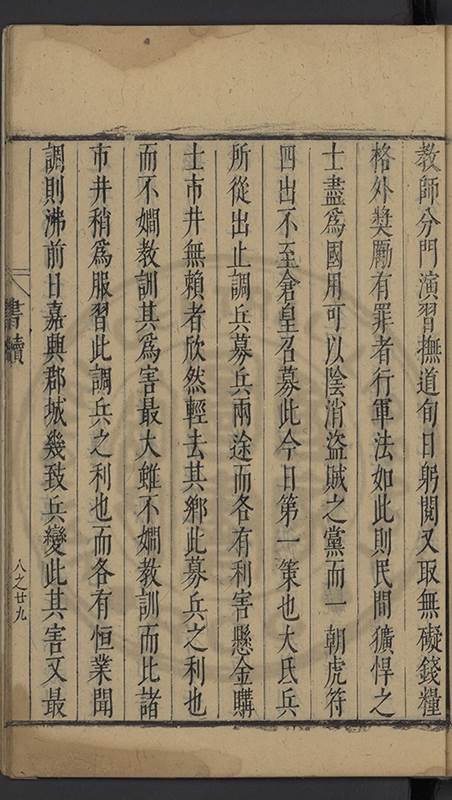 教師分門演習撫道旬日躬閱又取無礙錢糧
格外獎勵有罪者行軍法如此則民間獷悍之
士盡為國用可以陰消盜賊之黨而一朝虎符
四出不至倉皇召募此今日第一策也大氐兵
所從出止調兵募兵兩途而各有利害懸金購
士市井無賴者欣然輕去其鄉此募兵之利也
而不嫺教訓其為害最大雖不嫺教訓而比諸
市井稍為服習此調兵之利也而各有恒業聞
調則沸前日嘉興郡城幾致兵變此其害又最
書牘
八之廿九